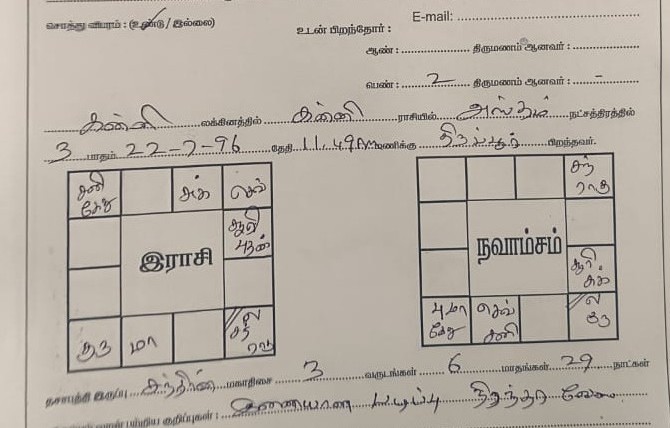 E-mail:
சொத்து விபரம் : (உண்டு / இல்லை)
உடன் பிறந்தோர் :
ஆண் : திருமணம் ஆனவர் :
பெண் : 2 திருமணம் ஆனவர் : -
கன்னி லக்கினத்தில் கன்னி ராசியில் அஸ்தம் நட்சத்திரத்தில்
3 பாதம் 22-7-96 தேதி 11.49 AM மணிக்கு திருப்பூர் பிறந்தவர்.
சனி கேது
சுக்
செவ்
சூரி புதன்
இராசி
குரு
மா
ல சந் ராகு
சந் ராகு
நவாம்சம்
சூரி சுக்
பு மா கேது
செவ் சனி
ல குரு
தசாபுத்தி இருப்பு சந்திரன் மகாதிசை 3 வருடங்கள் 6 மாதங்கள் 29 நாட்கள்
பற்றிய குறிப்புகள் : இணையான படிப்பு நிரந்தர வேலை